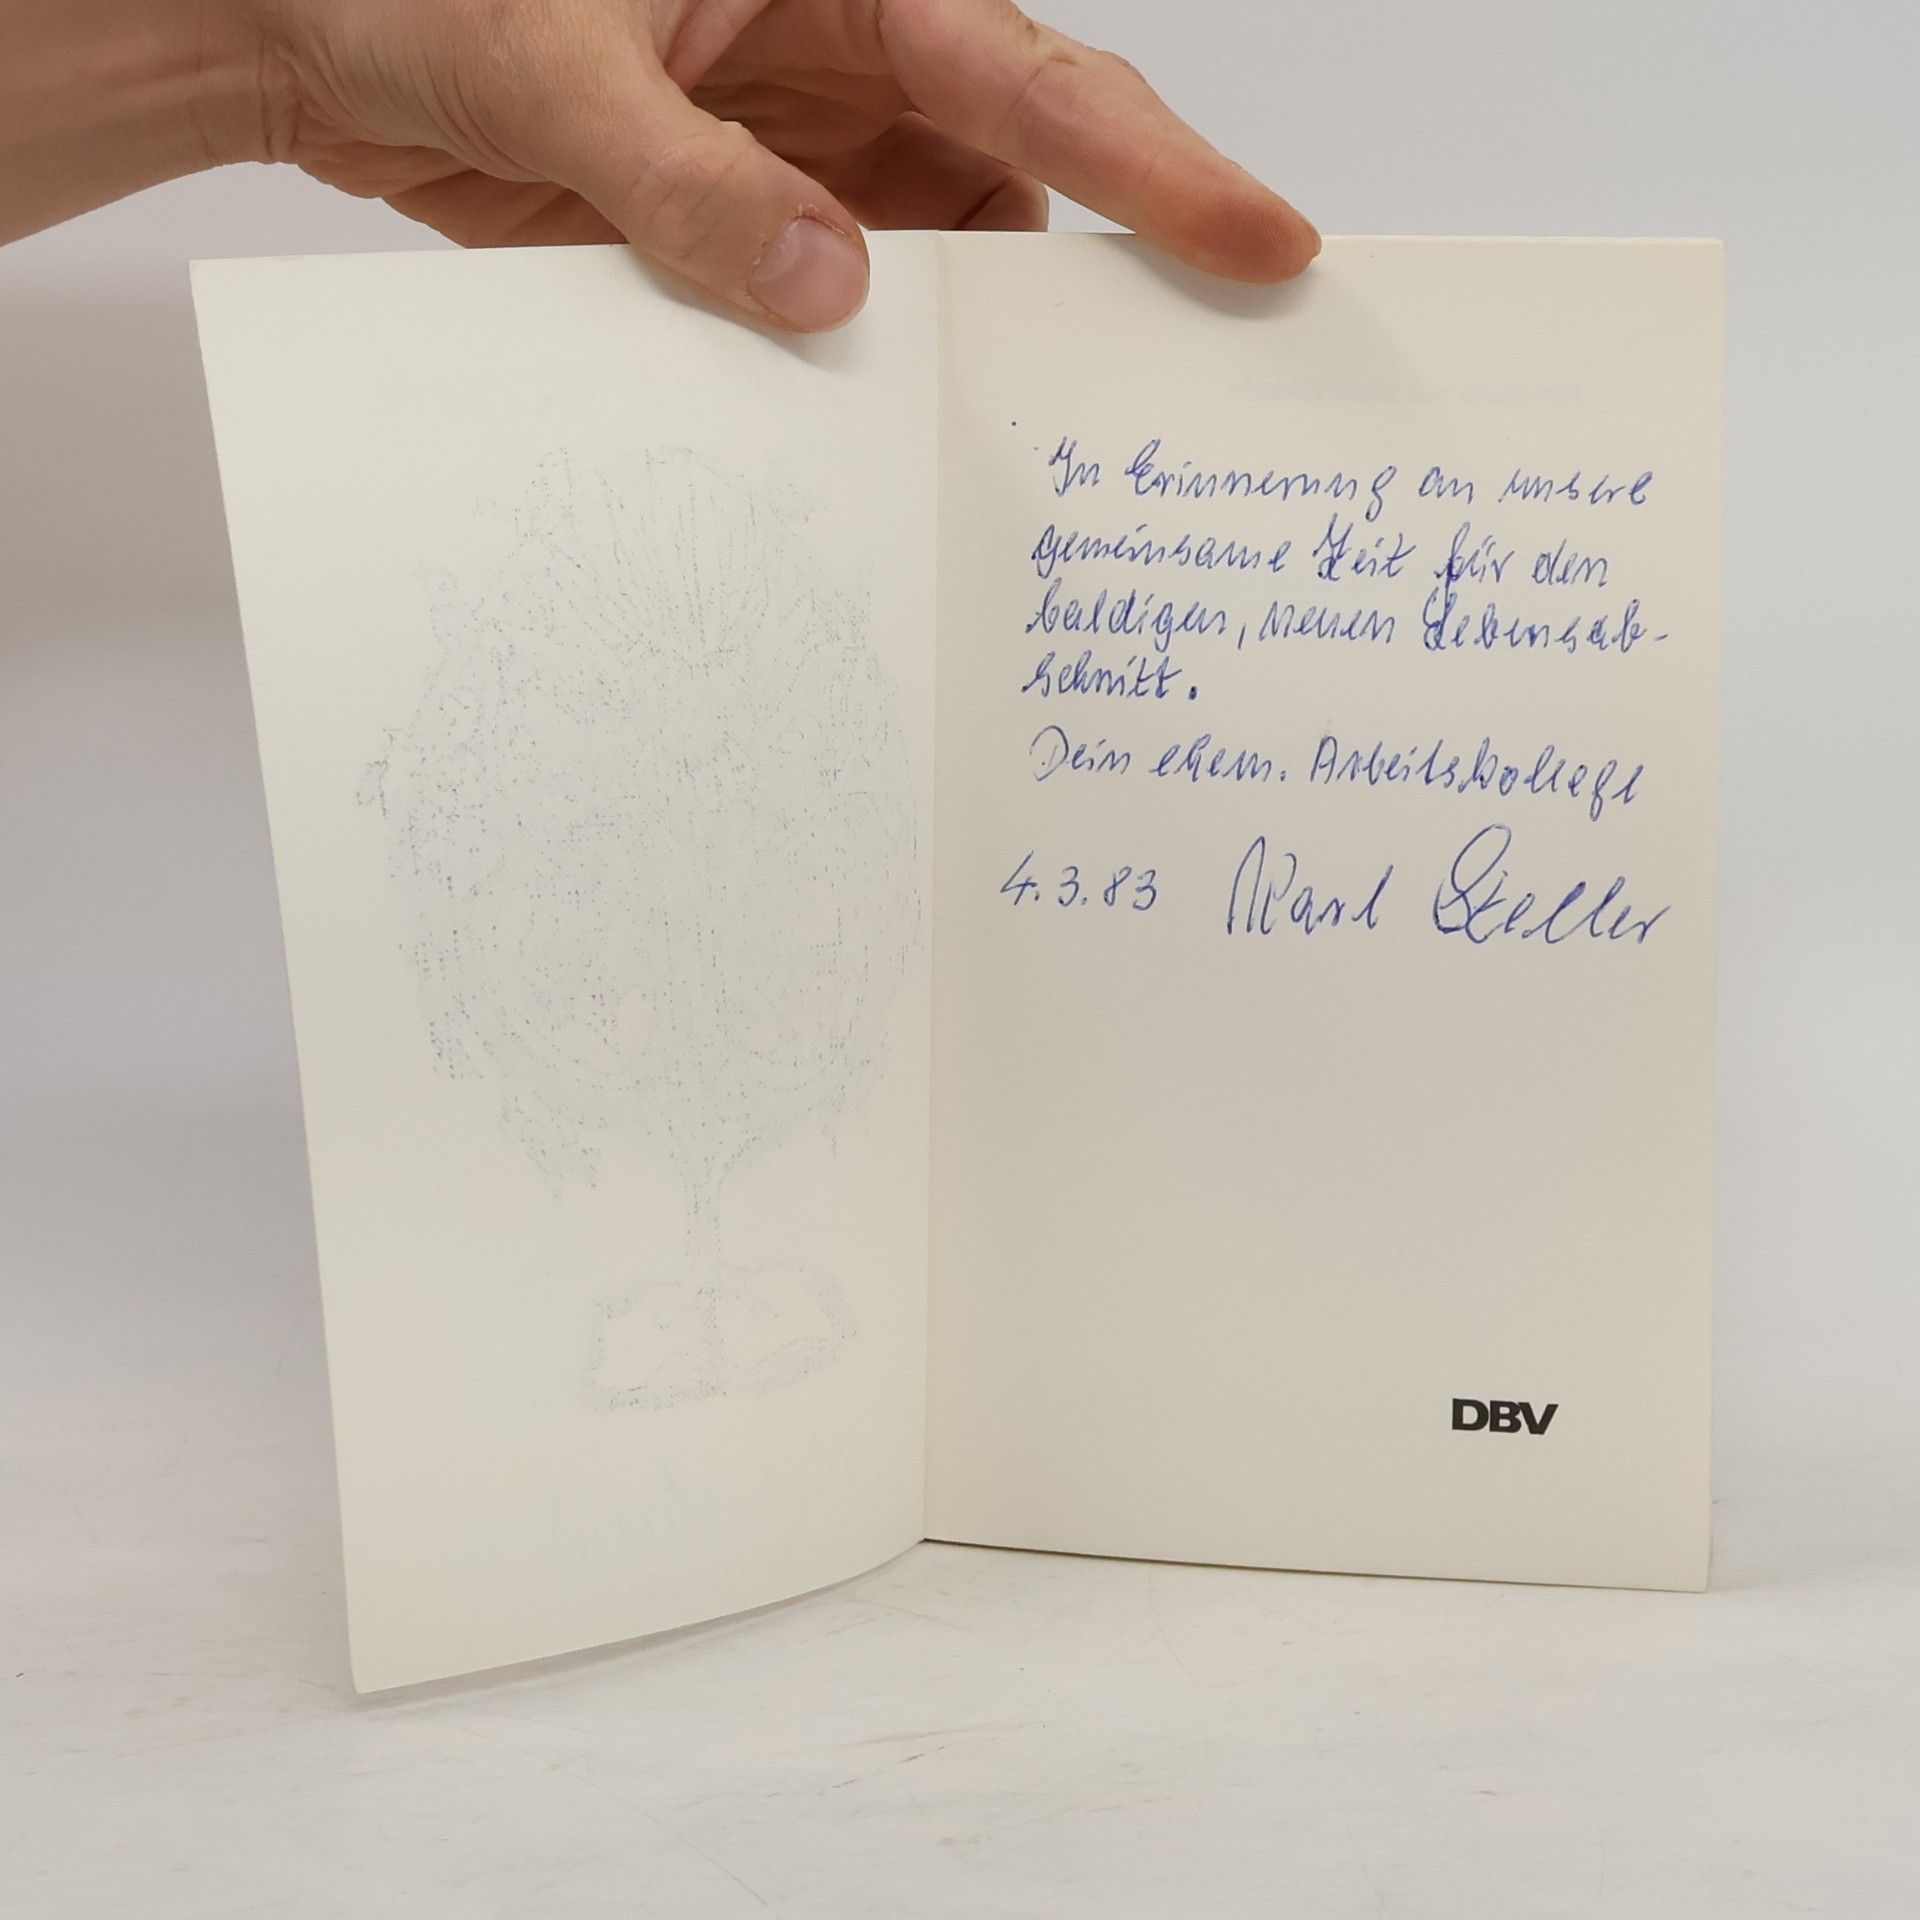 In Erinnerung an unsere
gemeinsame Zeit für den
baldigen, neuen Lebensab-
schnitt.
Dein ehem. Arbeitskollege
4.3.83 Karl Steller
DBV